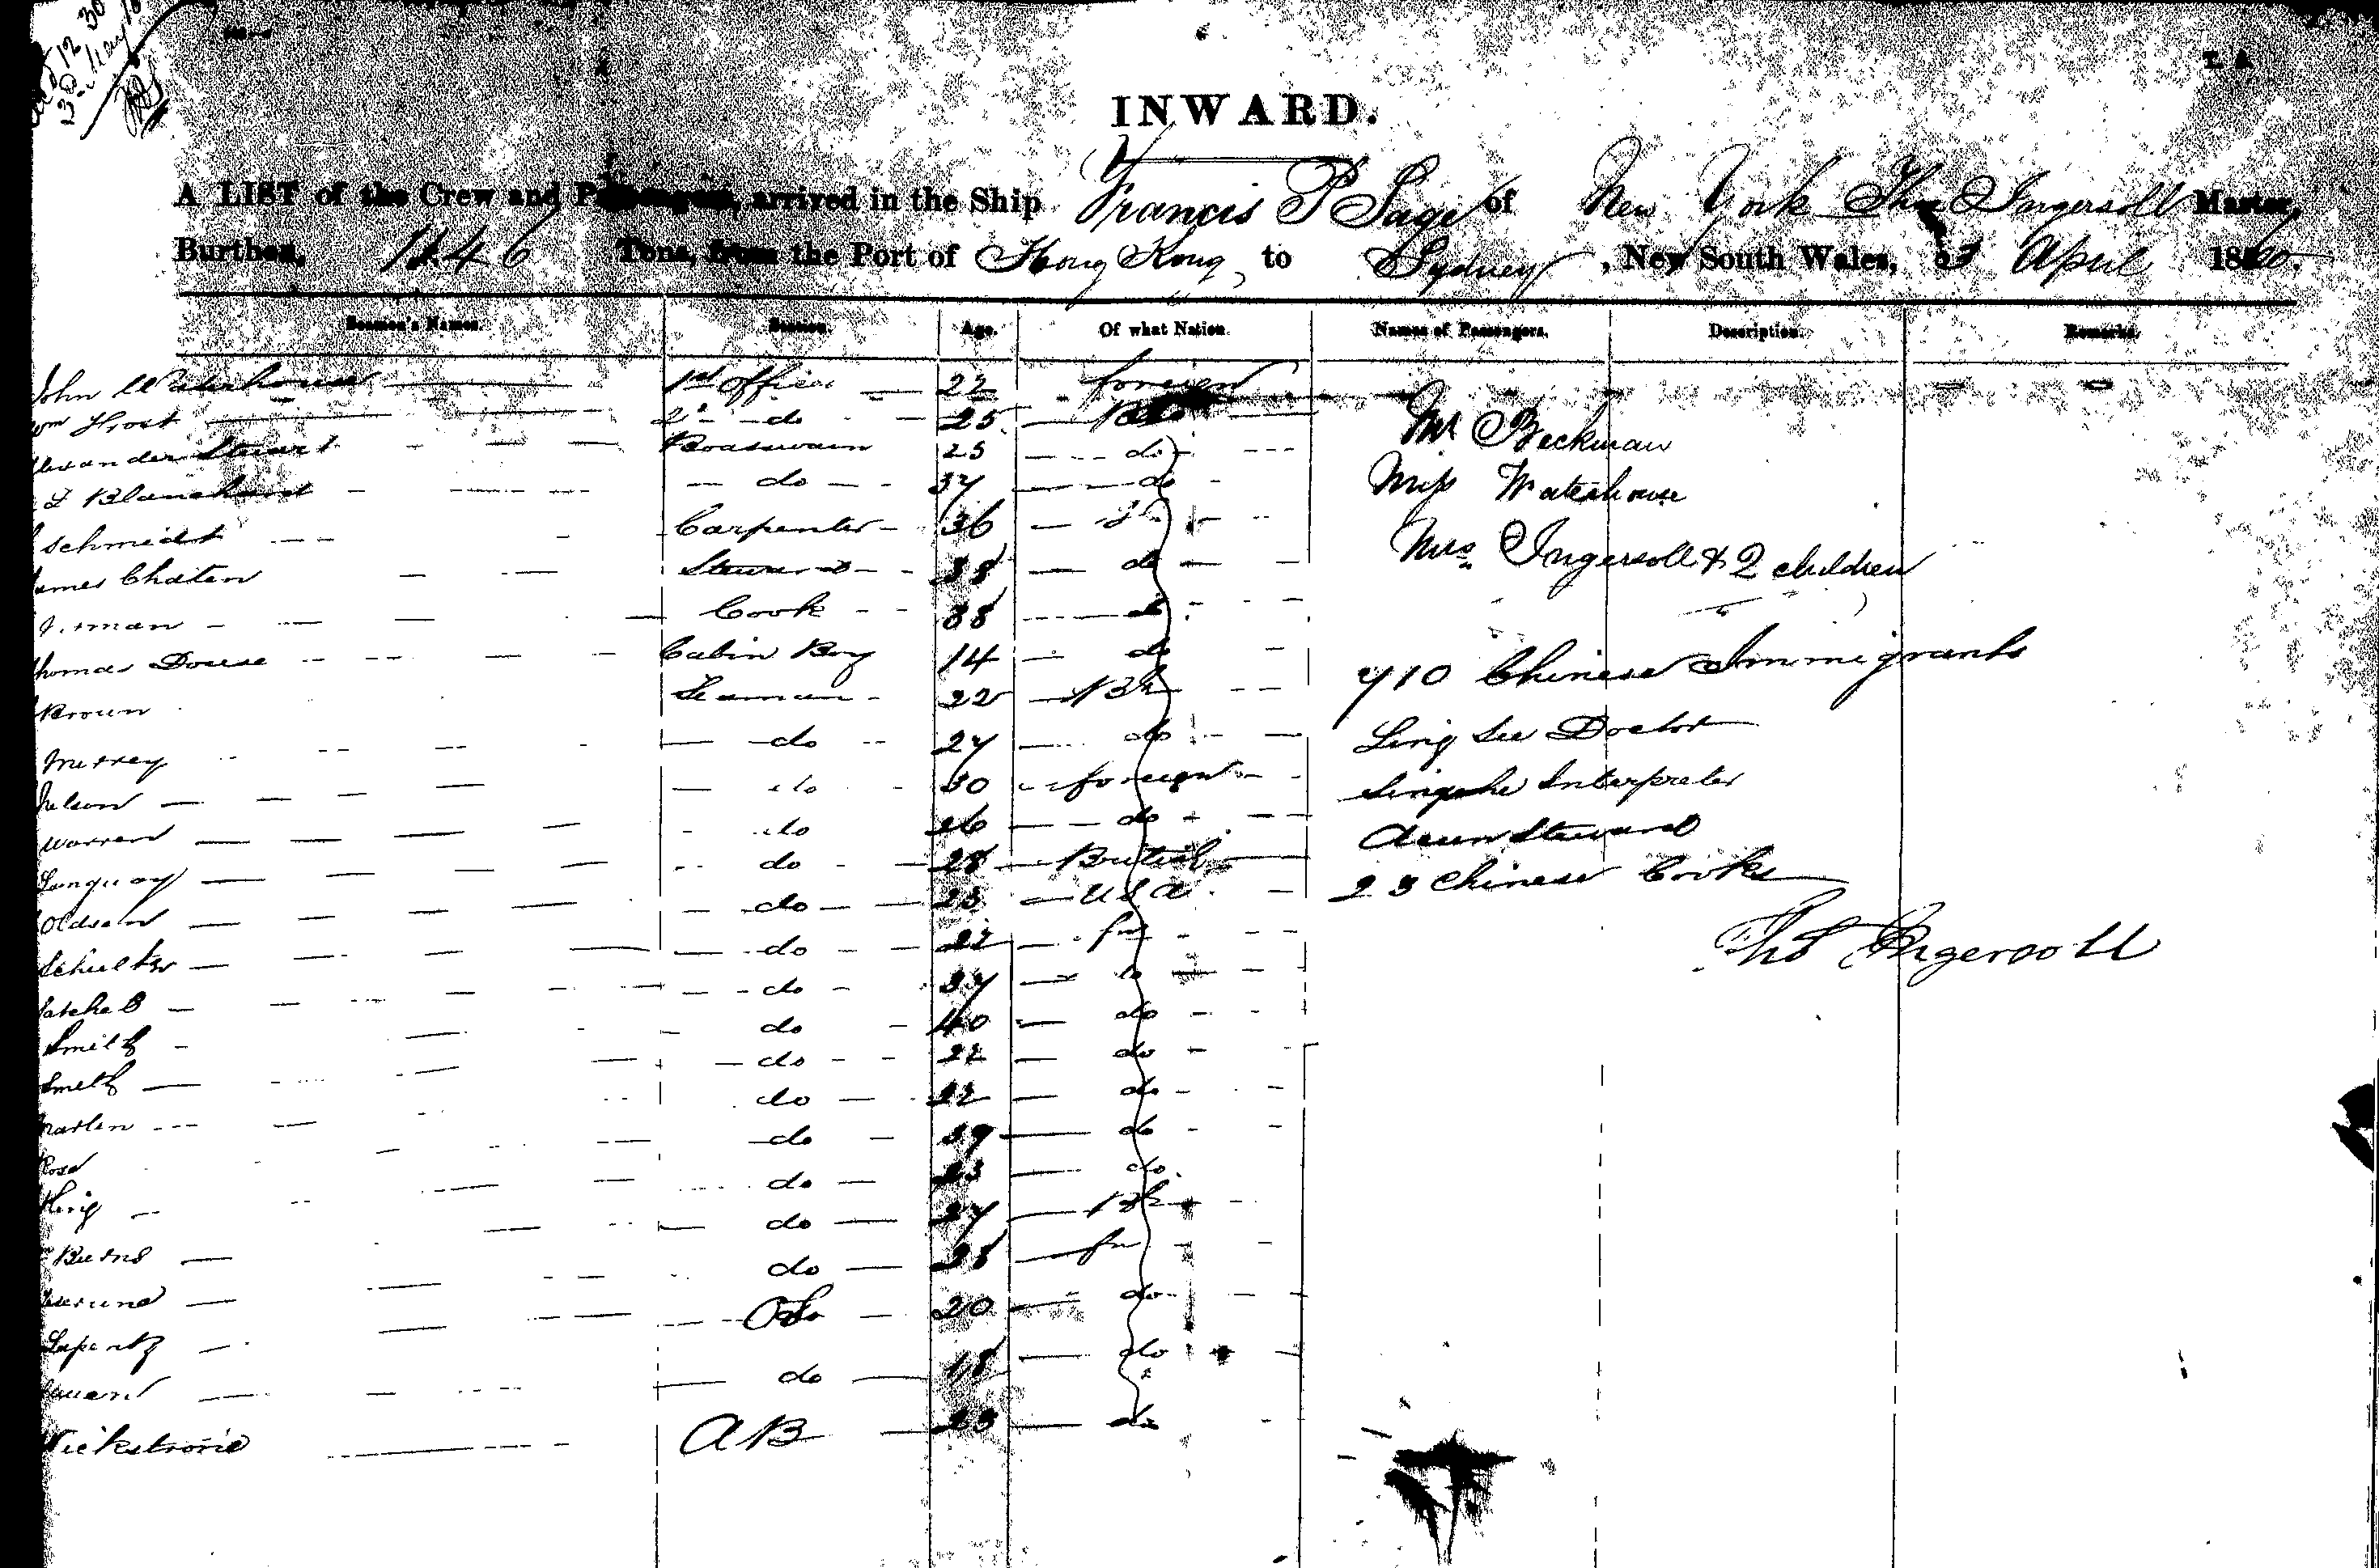 INWARD.
A LIST of the Crew and Passengers, arrived in the Ship Francis P Sage of New York Thos Ingersoll Master,
Burthen, 1246 Tons, from the Port of Hong Kong to Sydney, New South Wales, 23 April 1860.
Seamen's Names. Station. Age. Of what Nation. Names of Passengers. Description. Remarks.
John Waterhouse 1st officer 22 foreign
Wm Frost 2d do 25
Alexander Stewart Boatswain 25 do
Blanchard do 37 do
Schmidt Carpenter 36
James Chaten Steward 38 do
Cook 38 do
Thomas Douse Cabin Boy 14 do
Brown Seaman 22 Bh
Murrey do 27 do
Nelson do 30 foreign
Warren do 26 do
Tanguay do 28 British
Oldsen do 23 USA
Schulter do 22 fn
Satchell do 37 do
Smith do 40 do
Smith do 22 do
Martin do 22 do
Rose do 39 do
King do 23 do
Burns do 27 Bh
do 28 fn
OS 20 do
do 18 do
Wickstrom AB 23 do
Mr Beckman
Miss Waterhouse
Mrs Ingersoll & 2 children
710 Chinese Immigrants
Ling See Doctor
Interpreter
Steward
23 Chinese Cooks
Thos Ingersoll